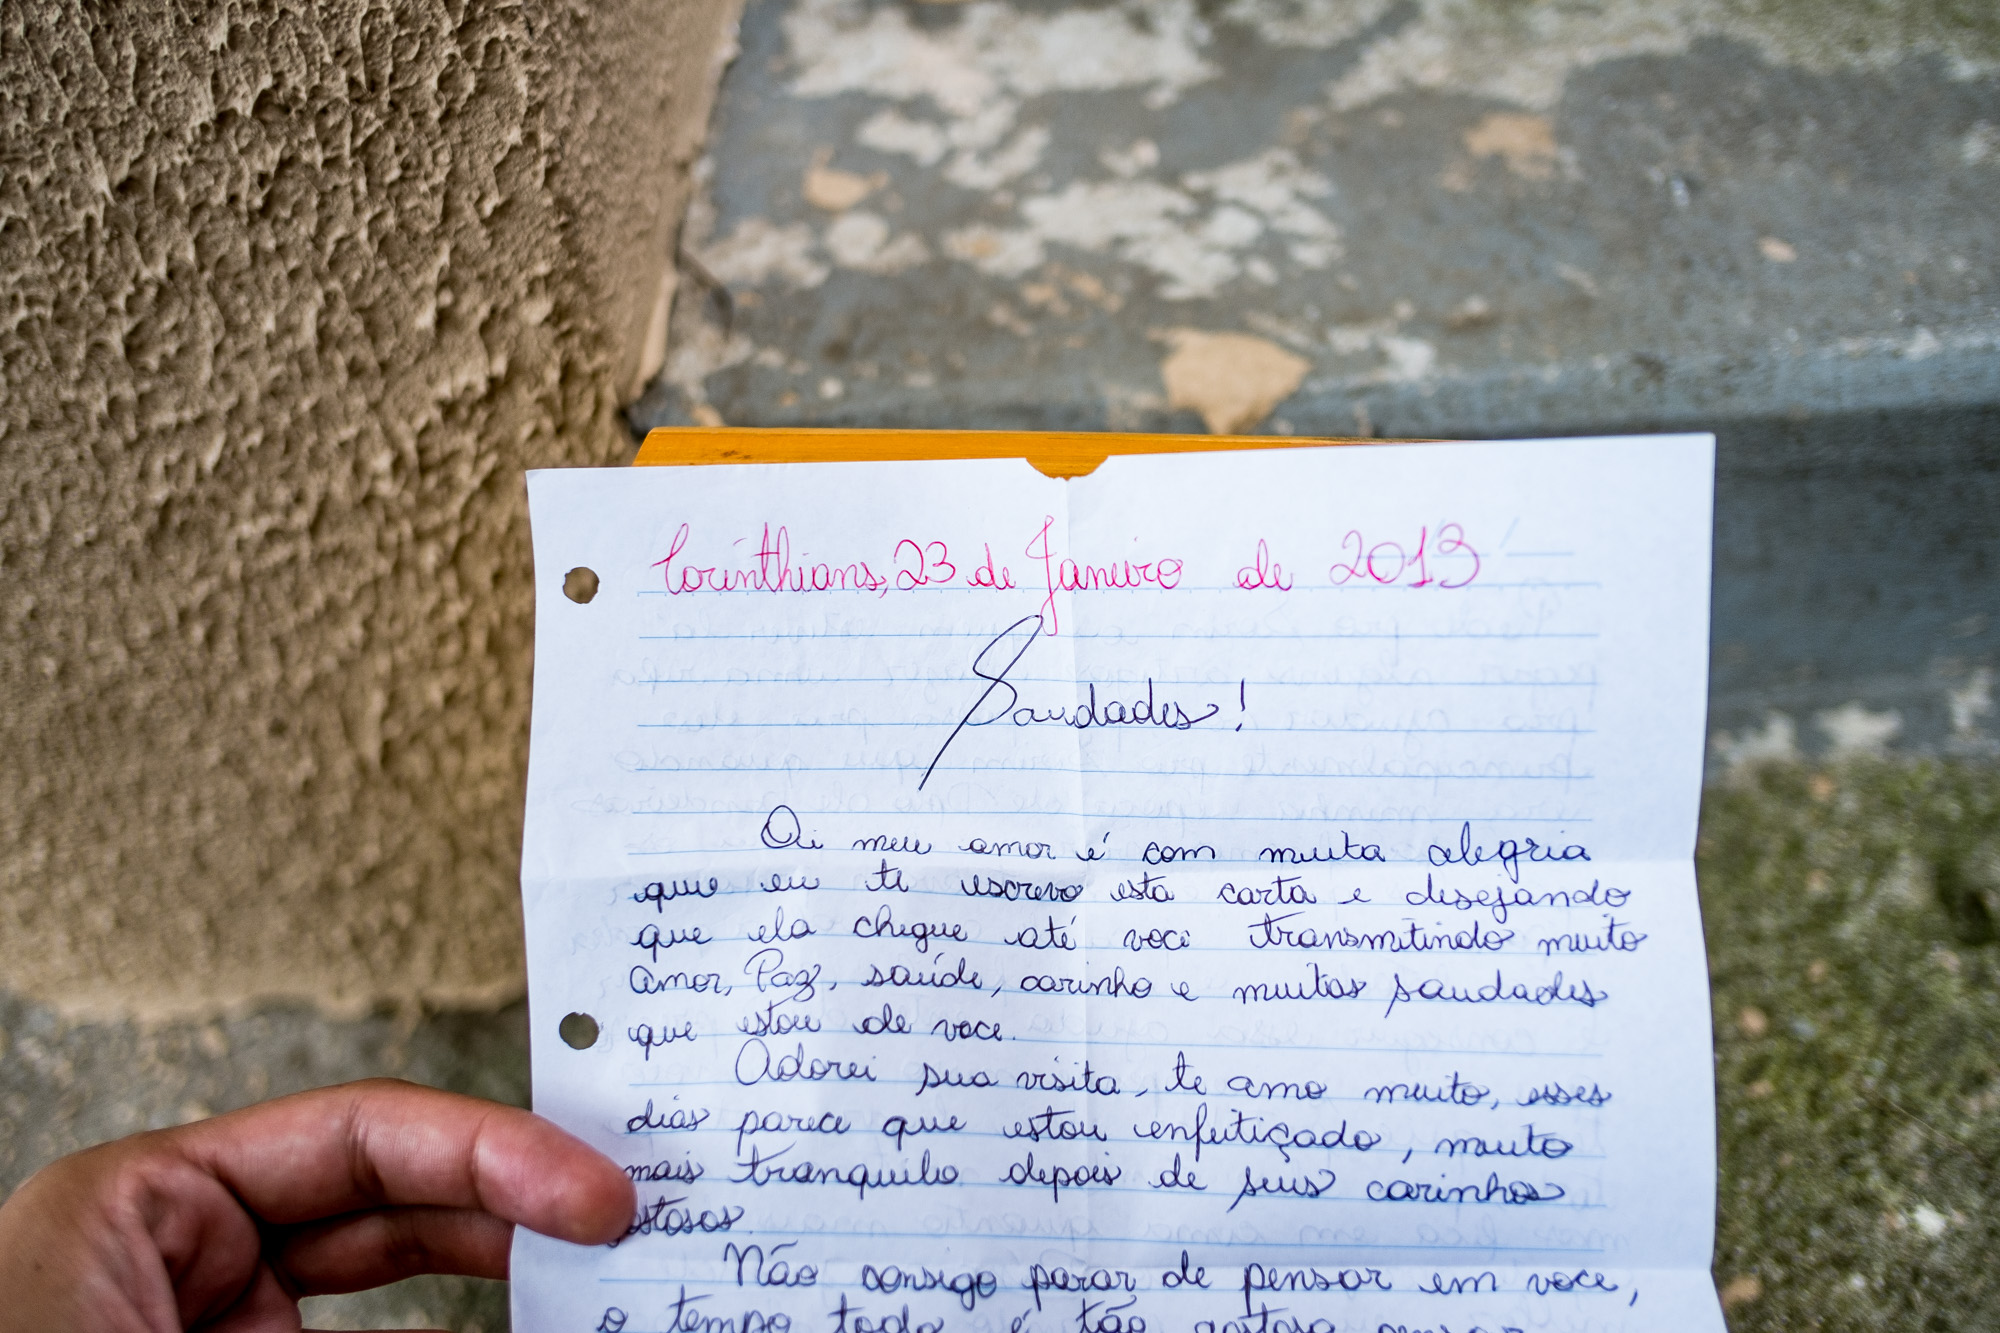 Corinthians, 23 de Janeiro de 2013
Saudades!
Oi meu amor é com muita alegria
que eu te escrevo esta carta e desejando
que ela chegue até você transmitindo muito
amor, Paz, saúde, carinho e muitas saudades
que estou de voce.
Adorei sua visita, te amo muito, esses
dias parece que estou enfeitiçado, muito
mais tranquilo depois de seus carinhos
gostosos.
Não consigo parar de pensar em voce,
o tempo todo é tão gostoso pensar